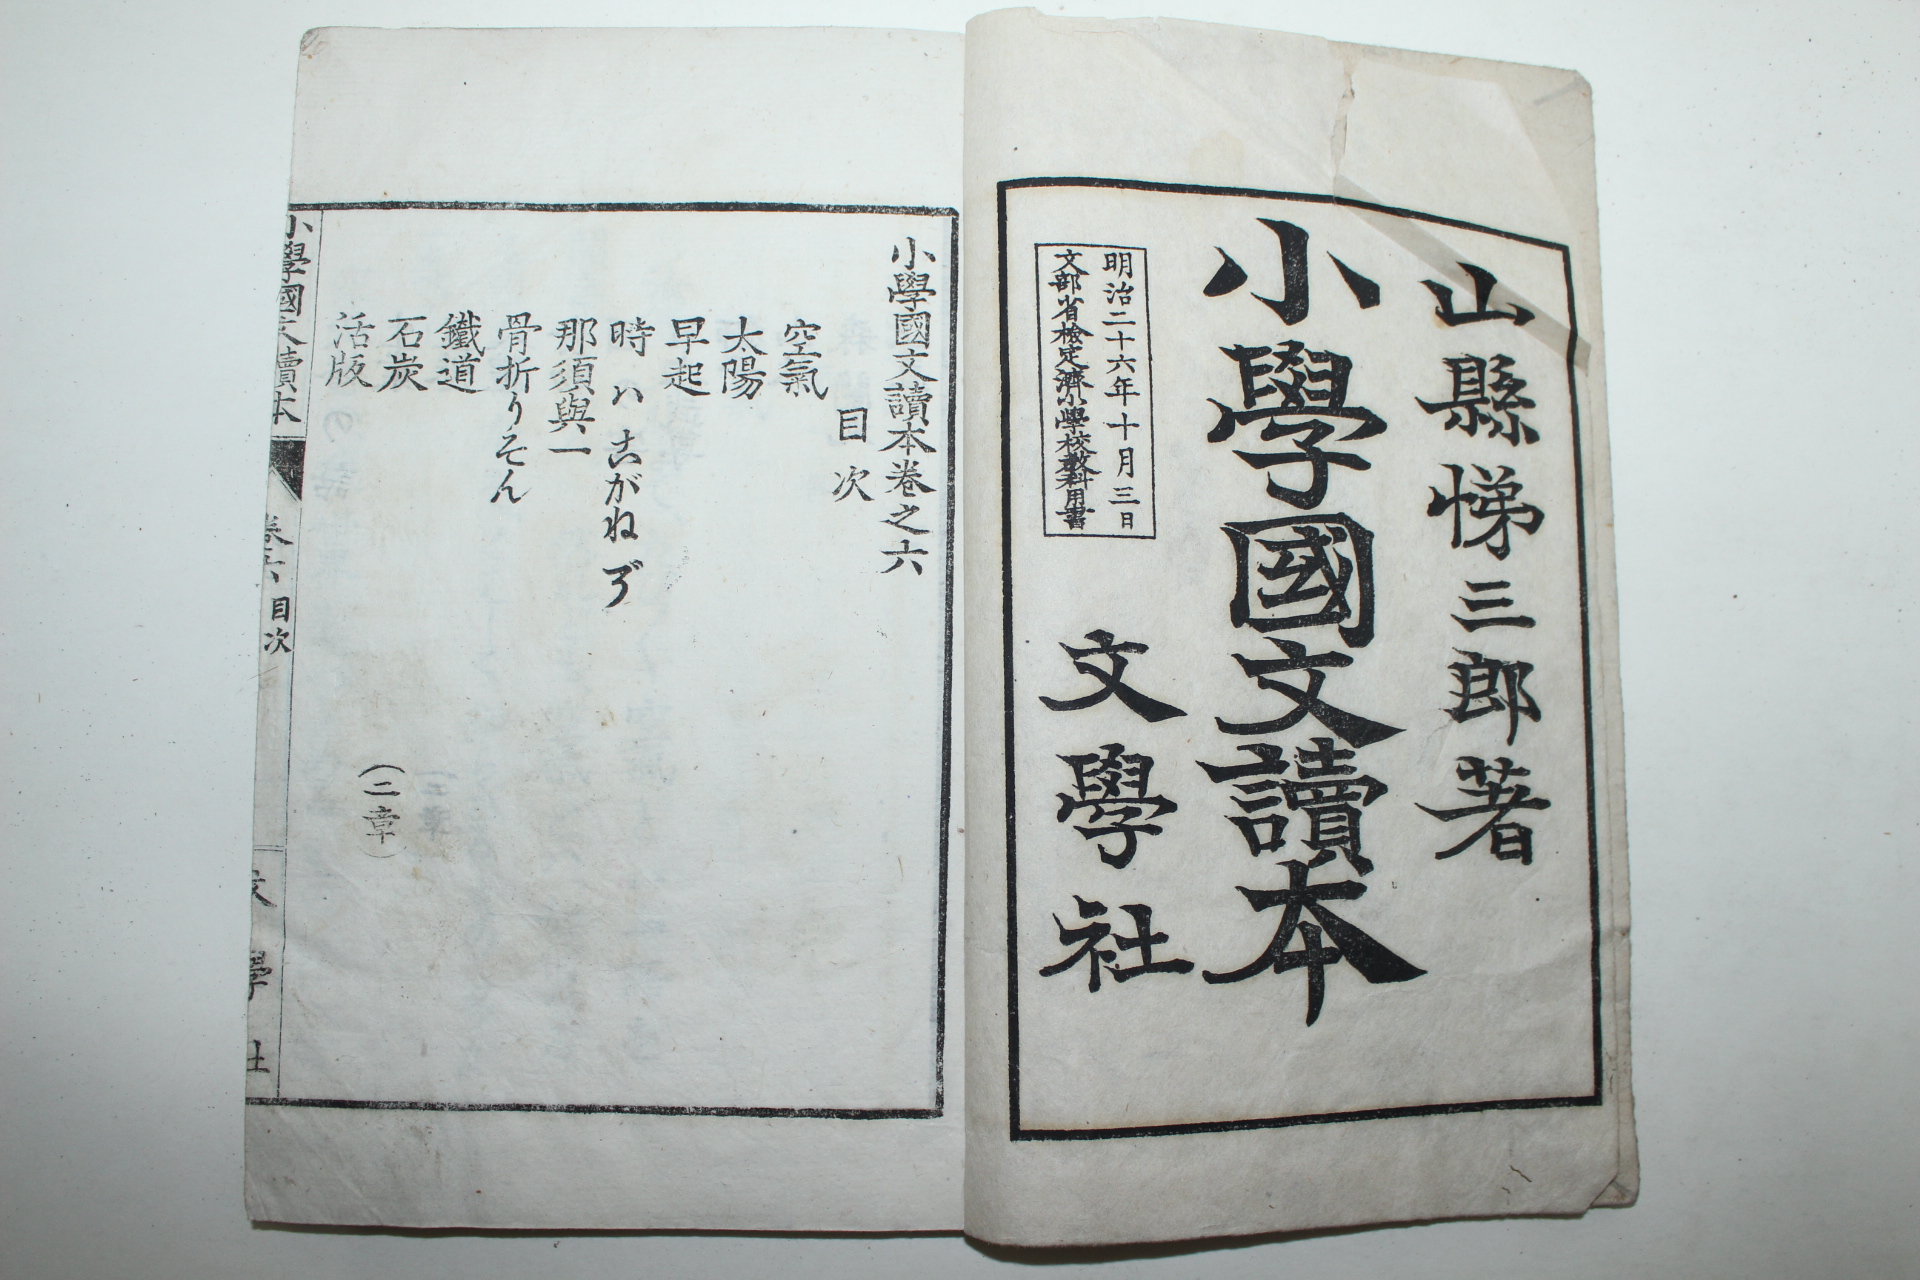 山縣悌三郎著
小學國文讀本
文學社
明治二十六年十月三日
文部省檢定濟小學校教科用書
小學國文讀本卷之六
目次
空氣
太陽
早起
時ハこがねぞ
那須與一
骨折りそん
鐵道
石炭
活版
(二章)
小學國文讀本
卷六
目次
文學社